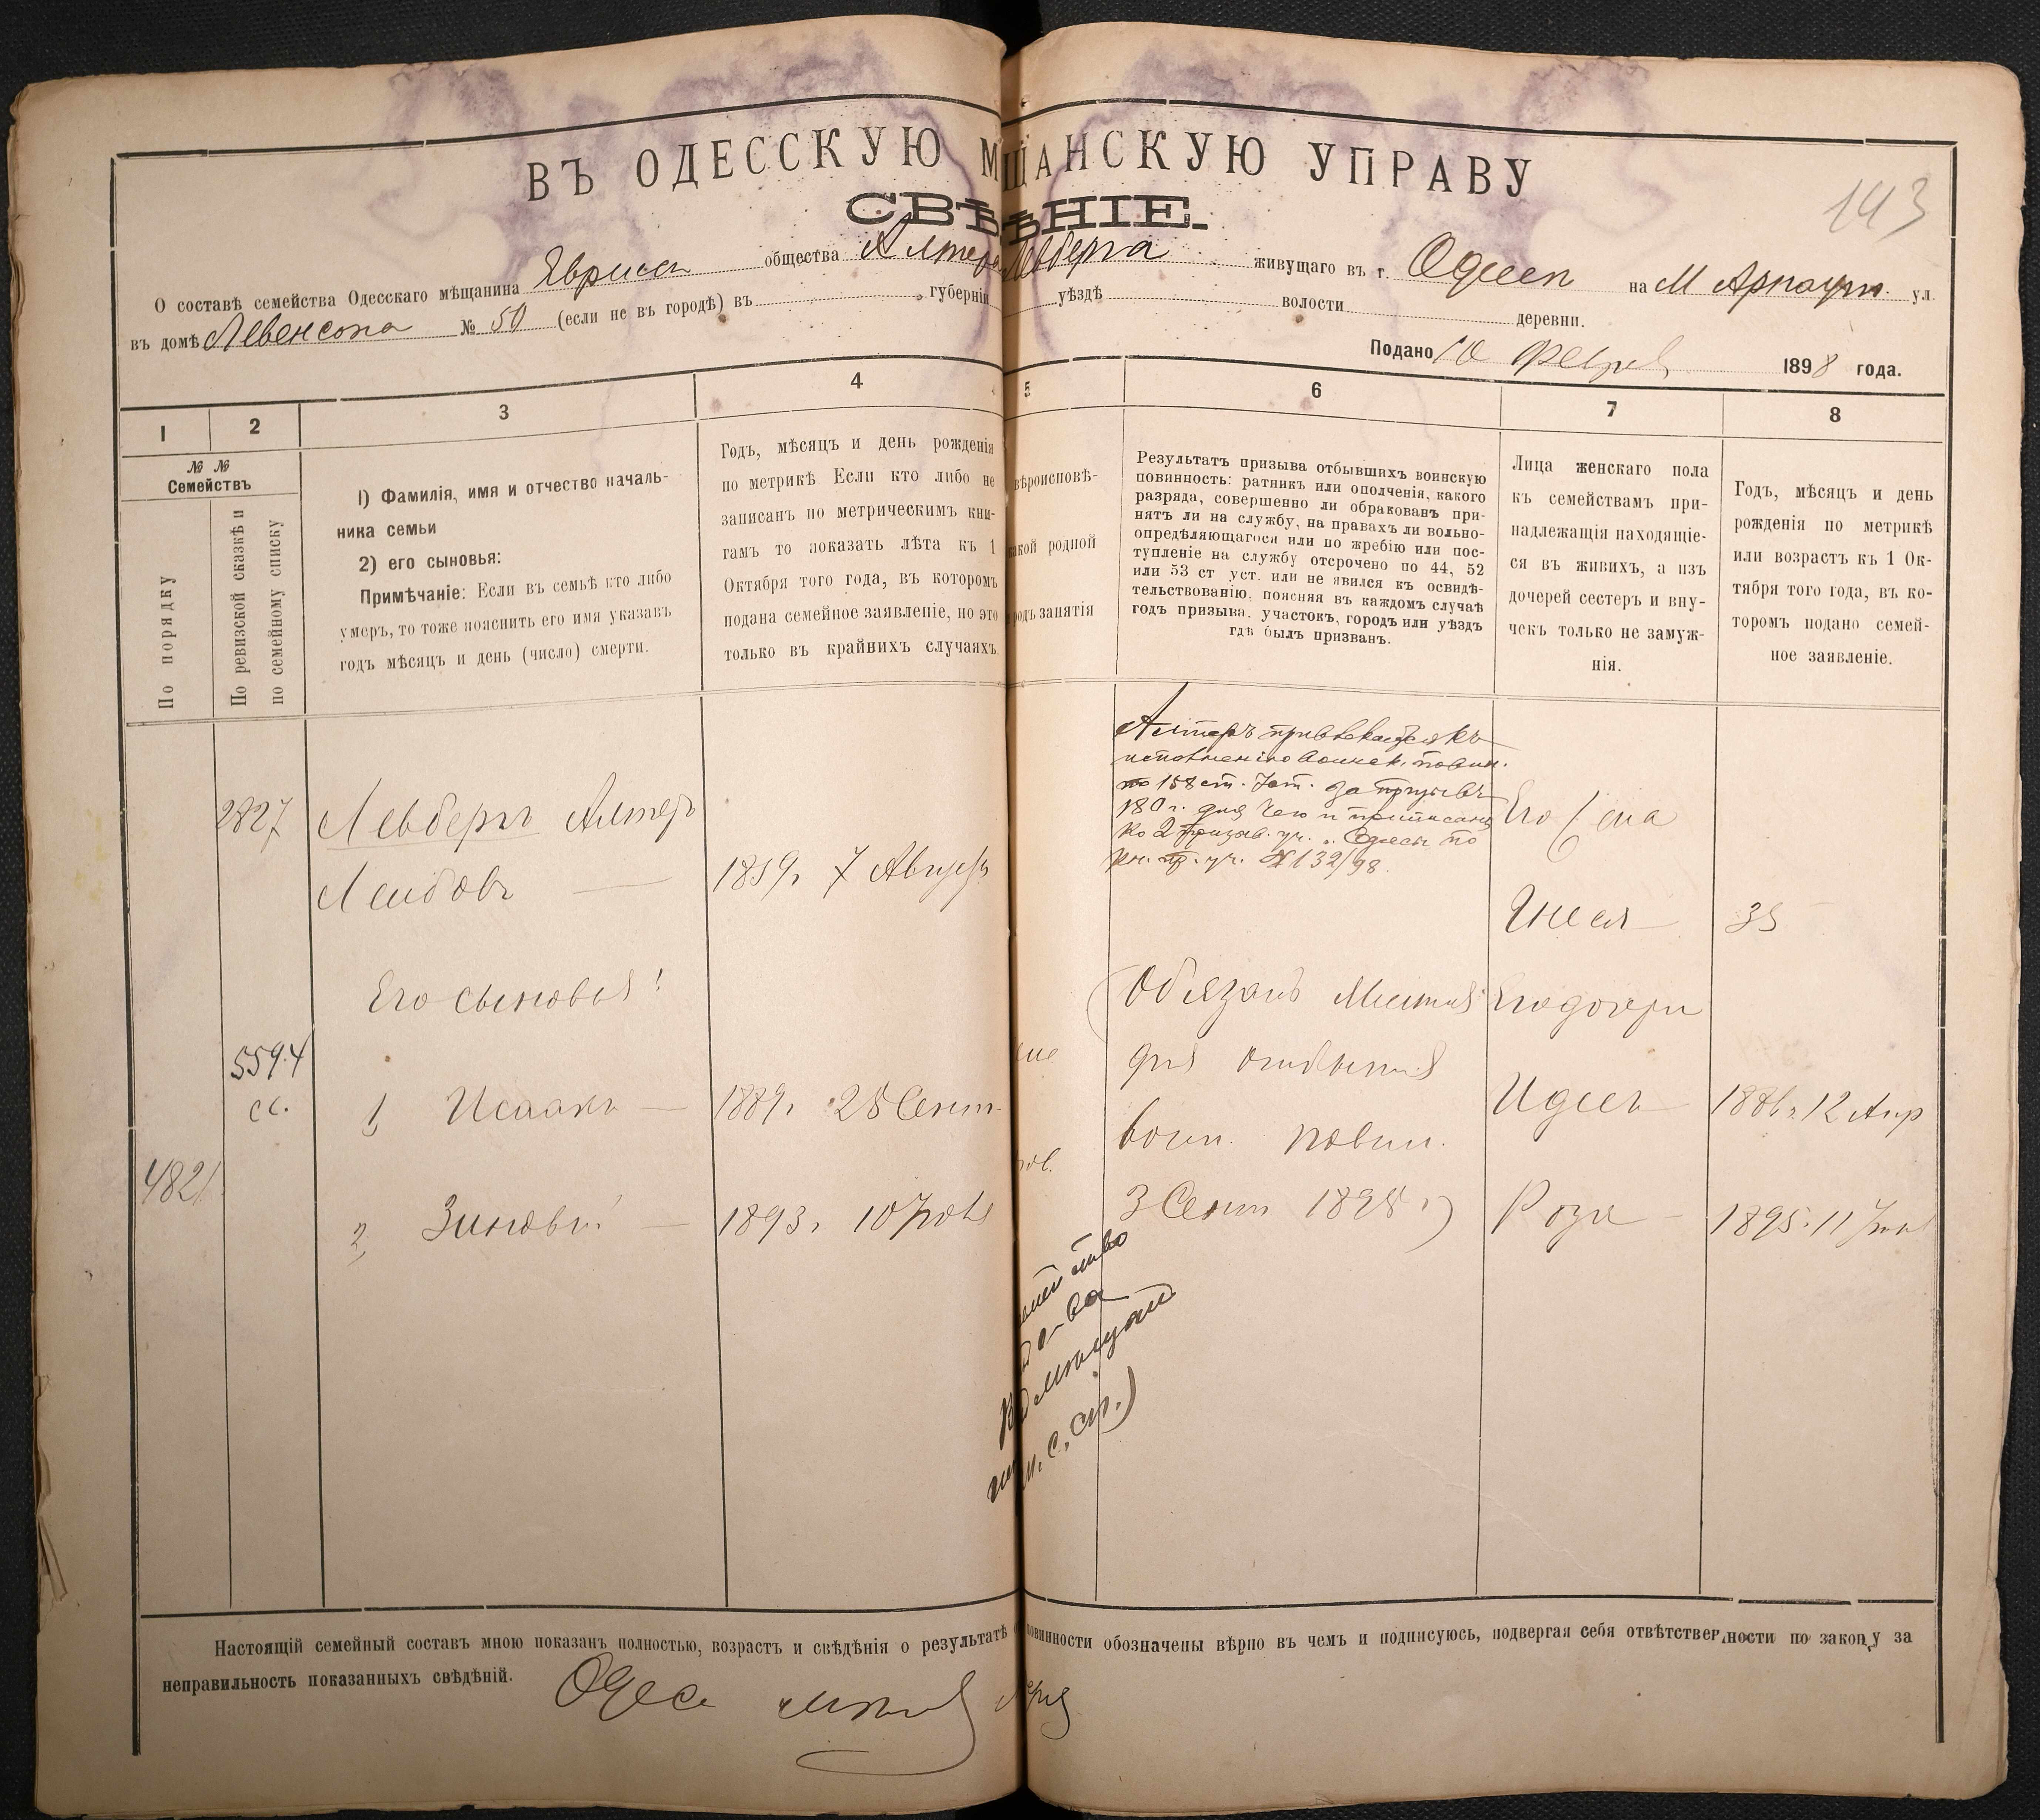 ВЪ ОДЕССКУЮ М ЩАНСКУЮ УПРАВУ
143
СВѢ ѢНІЕ.
О составѣ семейства Одесскаго мѣщанина общества Алтера Левберга живущаго въ г. Одессѣ на М Арнаутск. ул.
въ домѣ Левенсона № 50 (если не въ городѣ) въ губерніи уѣздѣ волости деревни.
Подано 10 Февр 1898 года.
1 2 3 4 5 6 7 8
№ №
Семействъ
По порядку
По ревизской сказкѣ и
по семейному списку
1) Фамилія, имя и отчество началь-
ника семьи
2) его сыновья:
Примѣчаніе: Если въ семьѣ кто либо
умеръ, то тоже пояснить его имя указавъ
годъ мѣсяцъ и день (число) смерти.
Годъ, мѣсяцъ и день рожденія
по метрикѣ Если кто либо не
записанъ по метрическимъ кни-
гамъ то показать лѣта къ 1
Октября того года, въ которомъ
подана семейное заявленіе, но это
только въ крайнихъ случаяхъ.
вѣроисповѣ-
акой родной
родъ занятія
Результатъ призыва отбывшихъ воинскую
повинность: ратникъ или ополченія, какого
разряда, совершенно ли обракованъ при-
нятъ ли на службу, на правахъ ли вольно-
опредѣляющагося или по жребію или пос-
тупленіе на службу отсрочено по 44, 52
или 53 ст уст. или не явился къ освидѣ-
тельствованію. поясняя въ каждомъ случаѣ
годъ призыва, участокъ, городъ или уѣздъ
гдѣ былъ призванъ.
Лица женскаго пола
къ семействамъ при-
надлежащія находящіе-
ся въ живихъ, а изъ
дочерей сестеръ и вну-
чекъ только не замуж-
нія.
Годъ, мѣсяцъ и день
рожденія по метрикѣ
или возрастъ къ 1 Ок-
тября того года, въ ко-
торомъ подано семей-
ное заявленіе.
2827
Левбергъ Алтеръ
Лейбовъ
1859 г 7 Август
Алтеръ привлекается къ
исполненію воинск. повин.
по 158 ст. Уст. за призывъ
180 г. для чего и приписанъ
ко 2 призыв. уч. г. Одессы по
кн. пр. уч. № 132/98.
Его Жена
35
Его сыновья:
Обязанъ
Его дочери
5594
сс.
1, Исаакъ
1889 г. 25 Сент
для отбытія
воин. повин.
1886 г. 12 Апр
482
2, Зиновій
1893 г. 10
3 Сент 1898 г)
Роза
1895 г. 11
с. сп.)
Настоящій семейный составъ мною показанъ полностью, возрастъ и свѣдѣнія о результатѣ о повинности обозначены вѣрно въ чемъ и подписуюсь, подвергая себя отвѣтственности по закону за
неправильность показанныхъ свѣдѣній.